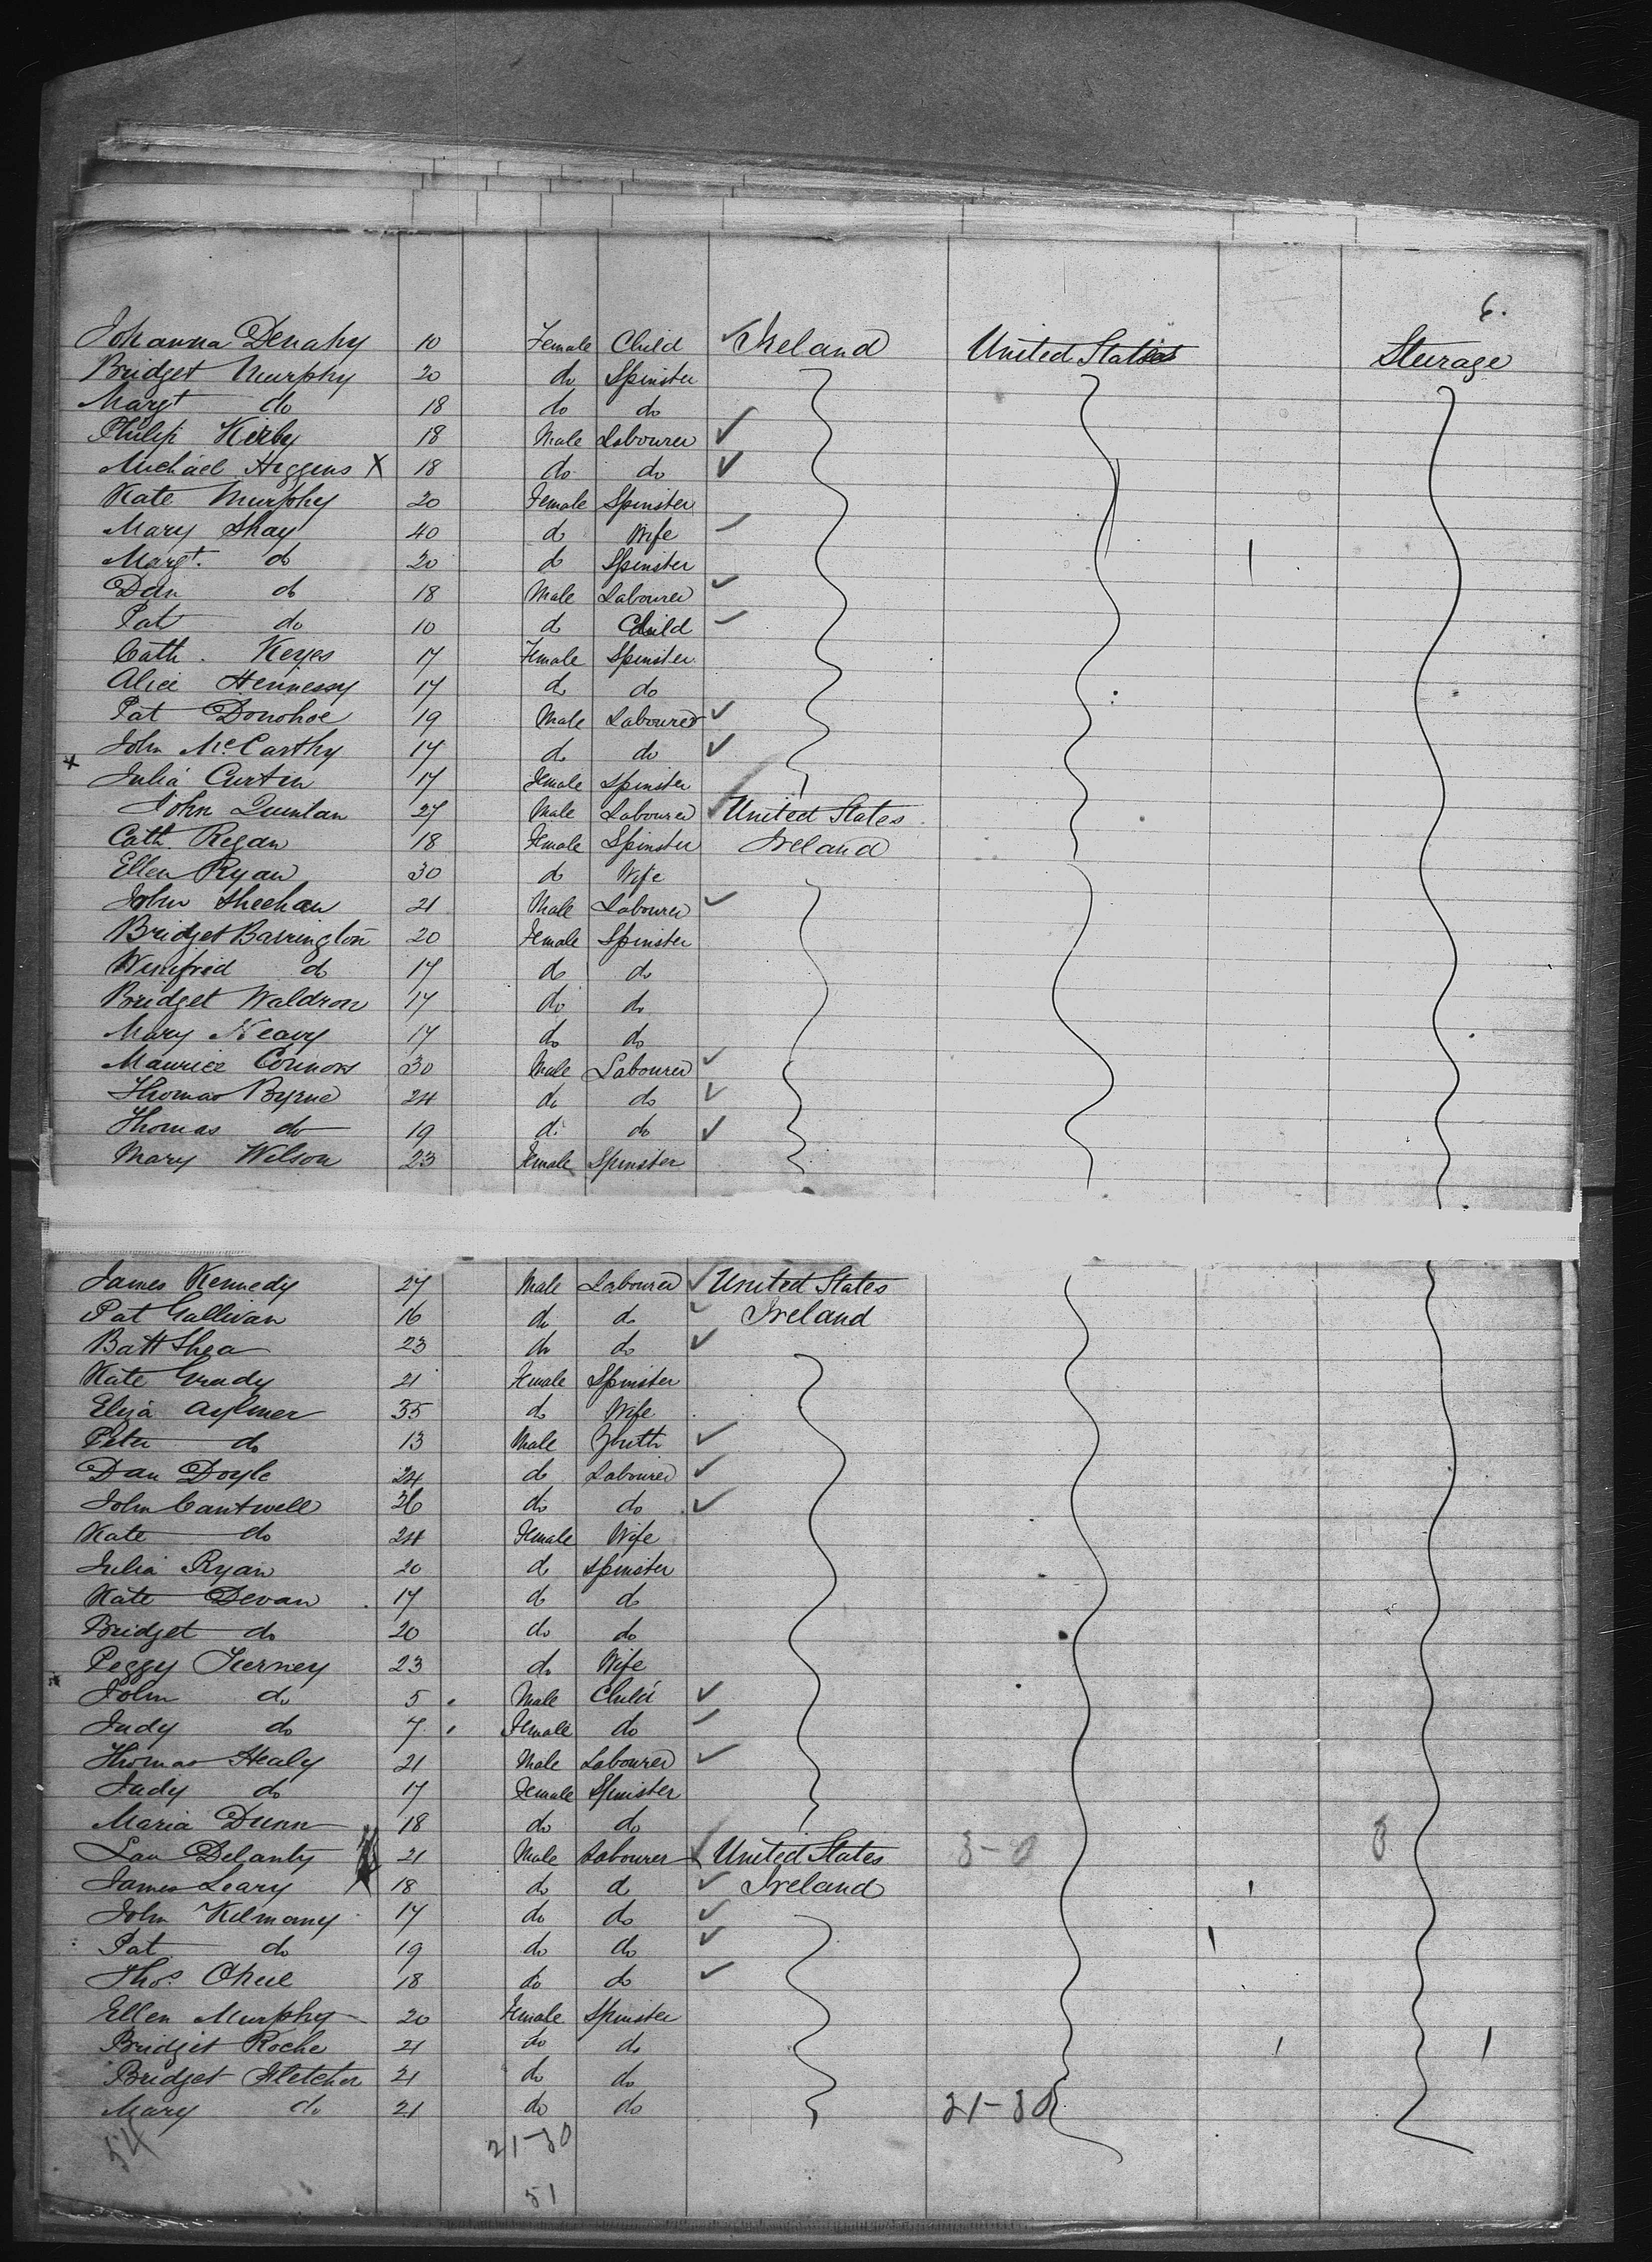 6.
Johanna Denahy 10 Female Child ✓ Ireland United States Steerage
Bridget Murphy 20 do Spinster
Margt do 18 do do
Philip Kirby 18 Male Labourer ✓
Michael Higgins X 18 do do ✓
Kate Murphy 20 Female Spinster
Mary Shay 40 do Wife ✓
Margt. do 20 do Spinster
Dan do 18 Male Labourer ✓
Pat do 10 do Child ✓
Cath. Keyes 17 Female Spinster
Alice Hennessy 17 do do
Pat Donohoe 19 Male Labourer ✓
John McCarthy 17 do do ✓
x Julia Curtin 17 Female Spinster
John Quinlan 27 Male Labourer ✓ United States
Cath. Regan 18 Female Spinster Ireland
Ellen Ryan 30 do Wife
John Sheehan 21 Male Labourer ✓
Bridget Barrington 20 Female Spinster
Winifrid do 17 do do
Bridget Waldron 17 do do
Mary Neavy 17 do do
Maurice Connors 30 Male Labourer ✓
Thomas Byrne 24 do do ✓
Thomas do 19 do do ✓
Mary Wilson 23 Female Spinster
James Kennedy 27 Male Labourer ✓ United States
Pat Gallivan 16 do do ✓ Ireland
Batt Shea 23 do do ✓
Kate Grady 21 Female Spinster
Eliza Aylmer 35 do Wife
Peter do 13 Male ✓
Dan Doyle 24 do Labourer ✓
John Cantwell 26 do do ✓
Kate do 24 Female Wife
Julia Ryan 20 do Spinster
Kate Devan 17 do do
Bridget do 20 do do
Peggy Tierney 23 do Wife
John do 5 Male Child ✓
Judy do 7 Female do ✓
Thomas Healy 21 Male Labourer ✓
Judy do 17 Female Spinster
Maria Dunn 18 do do
Lau Delanty 21 Male Labourer ✓ United States
James Leary 18 do do ✓ Ireland
John Kilmany 17 do do ✓
Pat do 19 do do ✓
Thos. 18 do do ✓
Ellen Murphy 20 Female Spinster
Bridget Roche 21 do do
Bridget Fletcher 21 do do
Mary do 21 do do 21-30
54 21-30
51